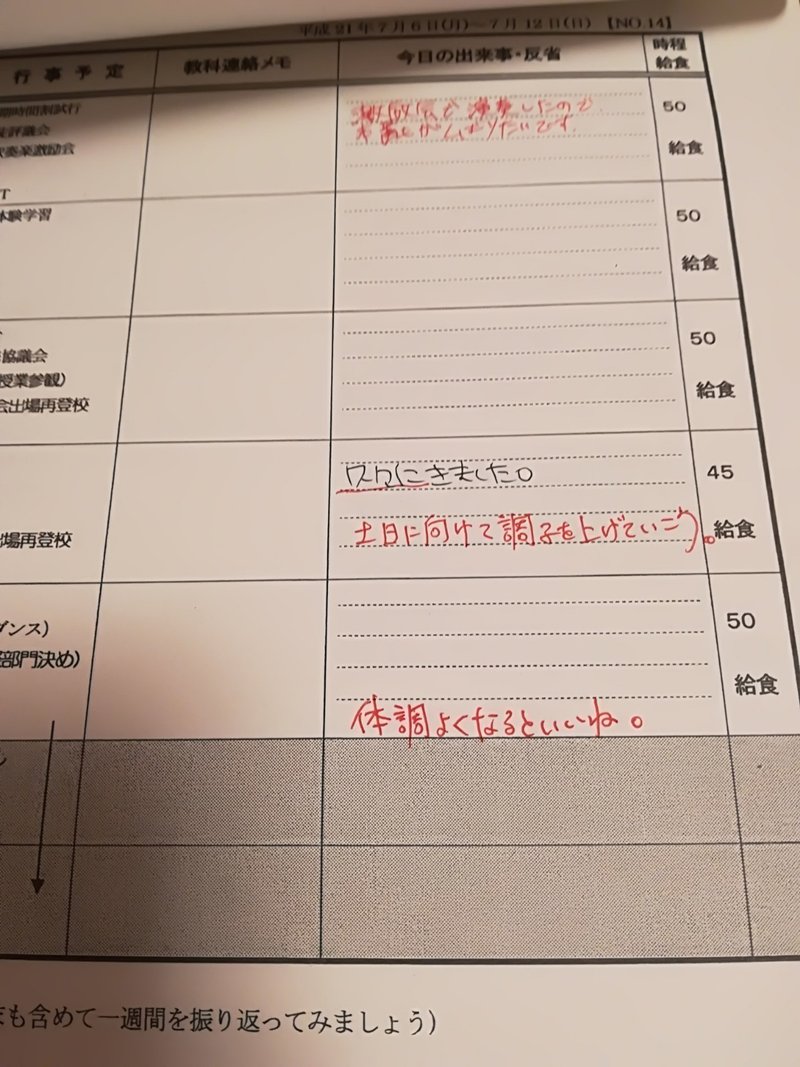 平成21年7月6日(月)～7月12日(日) 【NO.14】
行事予定 教科連絡メモ 今日の出来事・反省 時程 給食
期時間割試行
評議会
吹奏楽激励会
T
激励会で演奏したので
がんばりたいです。
50
給食
体験学習
50
給食
協議会
授業参観)
会出場再登校
50
給食
にきました。
45
土日に向けて調子を上げていこう。
給食
場再登校
50
ダンス)
部門決め)
給食
体調よくなるといいね。
も含めて一週間を振り返ってみましょう)